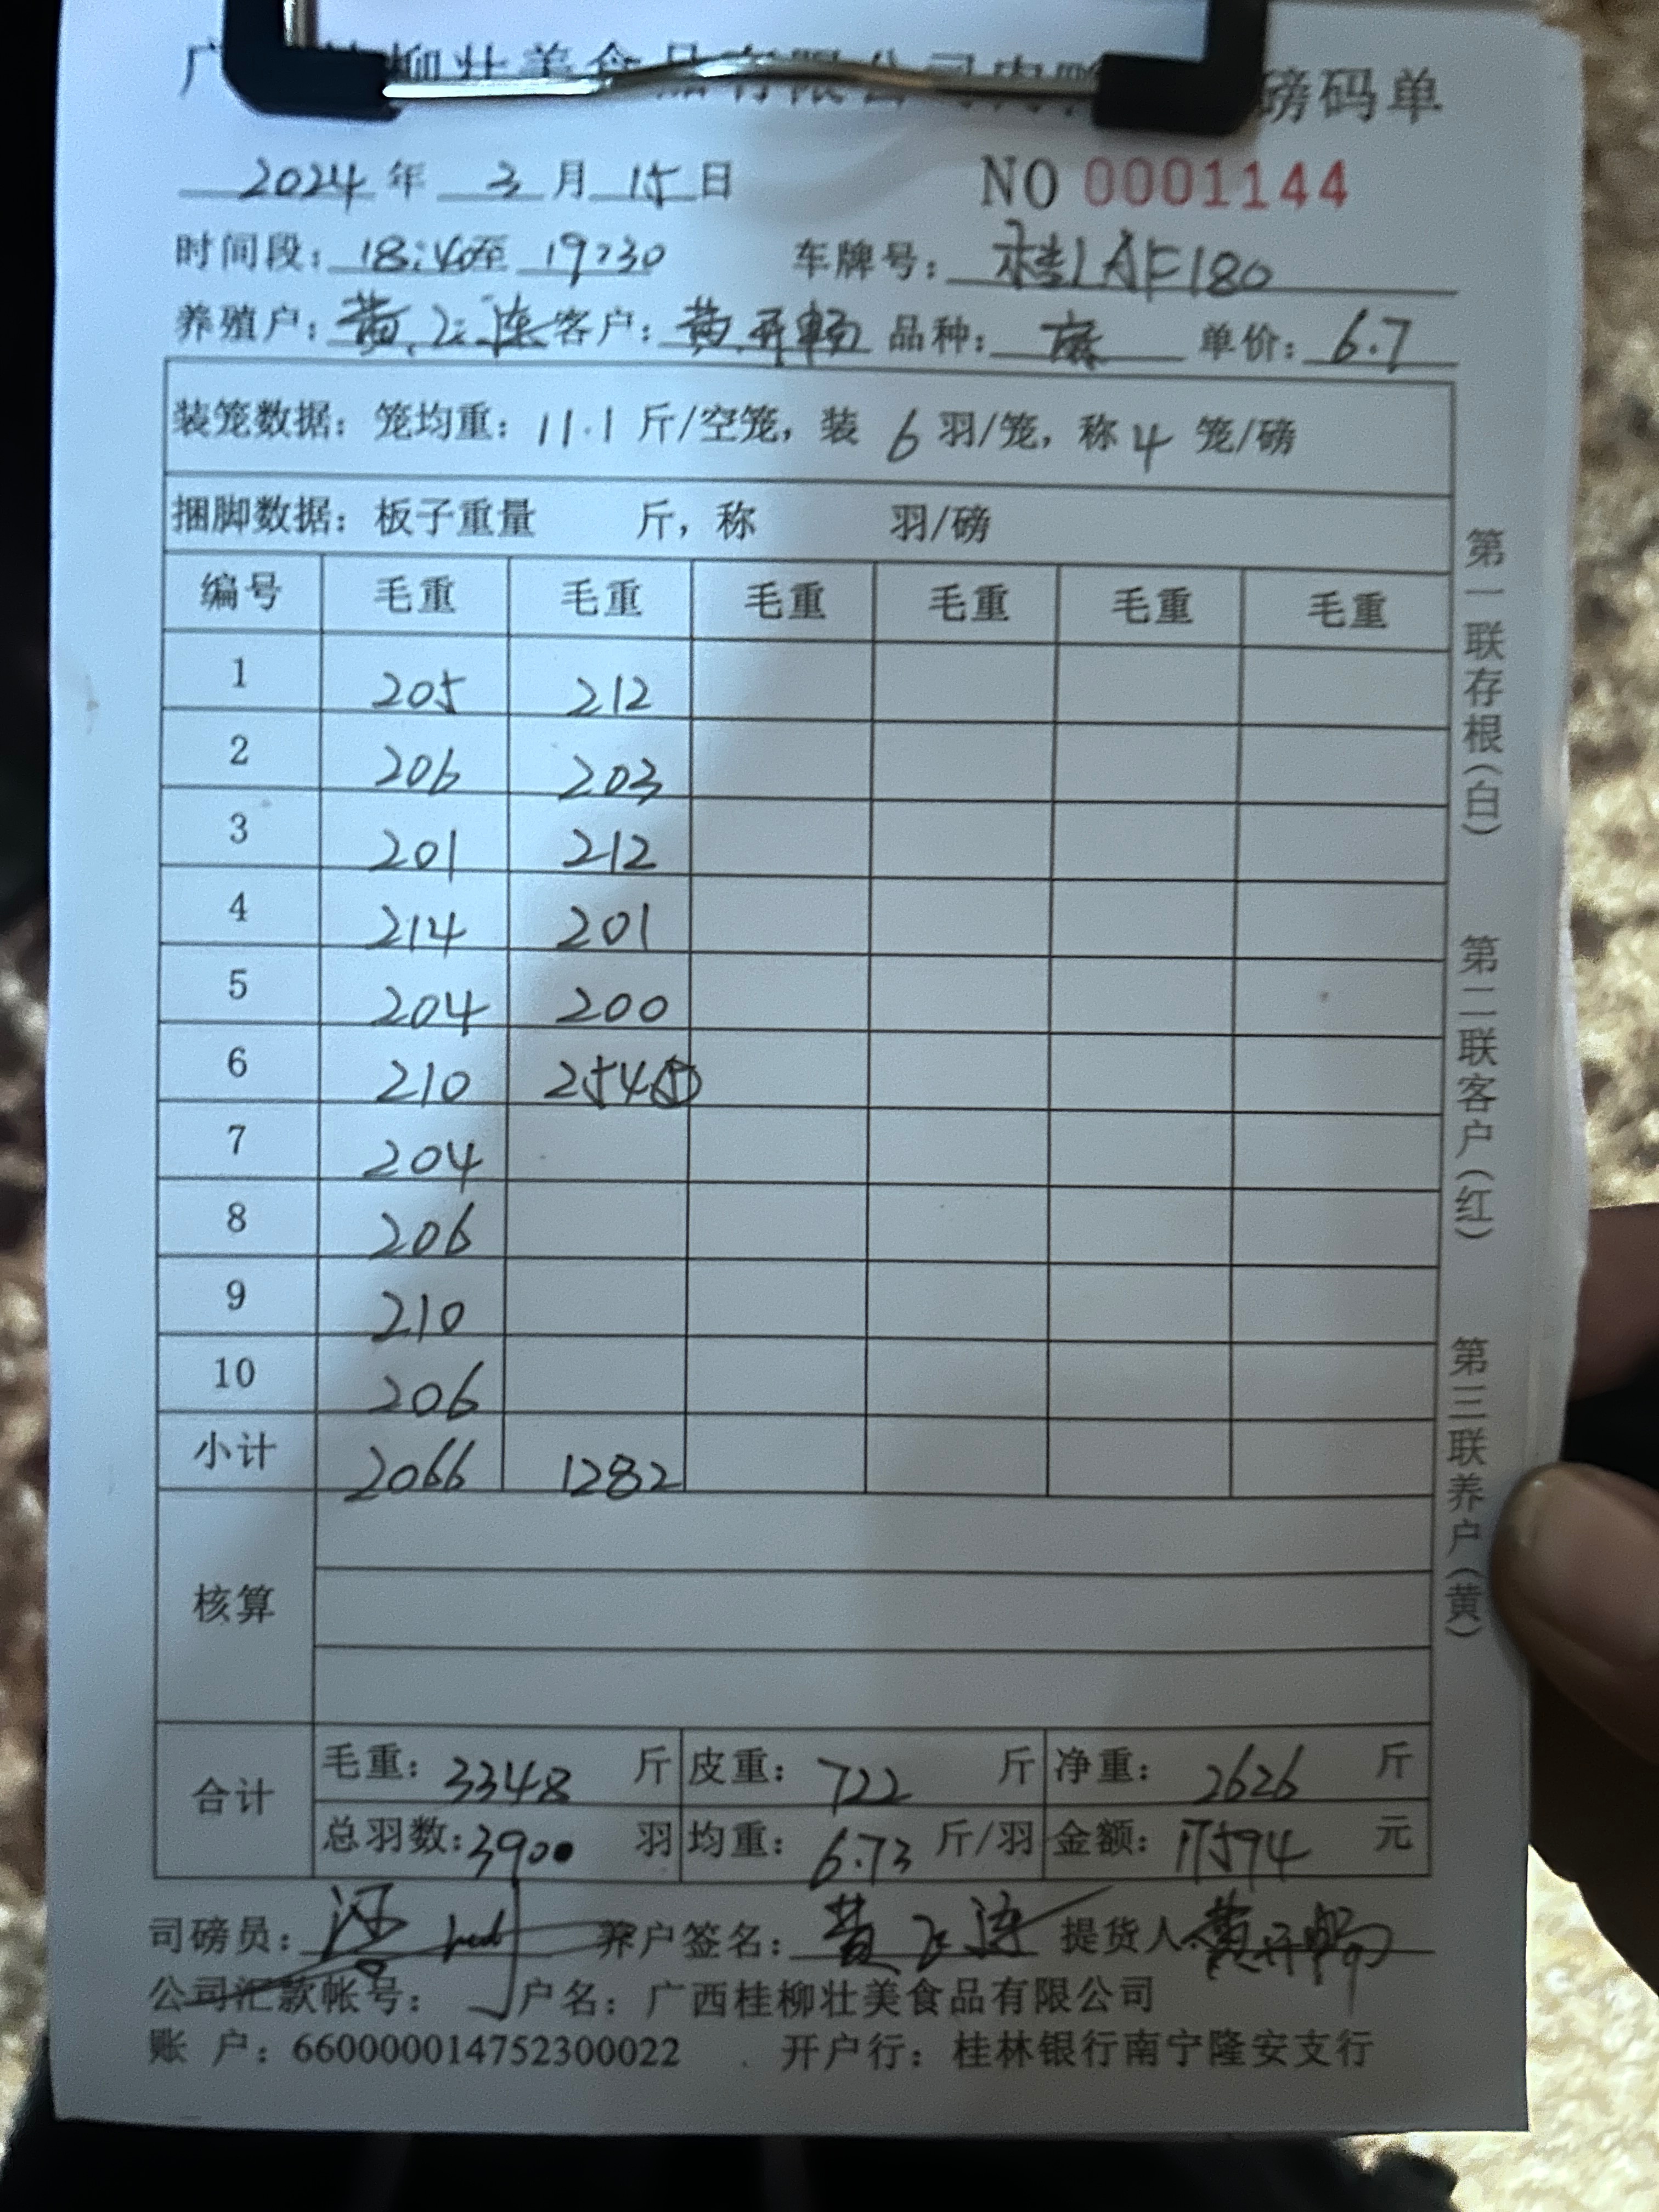 柳壮美食品有限公司肉鸭 磅码单
2024年 3月 15日 NO 0001144
时间段: 18:40至 19:30 车牌号: 桂AF180
养殖户: 黄飞连 客户: 黄开畅 品种: 麻 单价: 6.7
装笼数据: 笼均重: 11.1 斤/空笼, 装 6 羽/笼, 称 4 笼/磅
捆脚数据: 板子重量 斤, 称 羽/磅
编号 毛重 毛重 毛重 毛重 毛重 毛重
1 205 212
2 206 203
3 201 212
4 214 201
5 204 200
6 210 254⑤
7 204
8 206
9 210
10 206
小计 2066 1282
核算
合计
毛重: 3348 斤 皮重: 722 斤 净重: 2626 斤
总羽数: 390 羽 均重: 6.73 斤/羽 金额: 17594 元
司磅员: 养户签名: 黄飞连 提货人: 黄开畅
公司汇款帐号: 户名: 广西桂柳壮美食品有限公司
账 户: 660000014752300022 开户行: 桂林银行南宁隆安支行
第一联存根(白) 第二联客户(红) 第三联养户(黄)